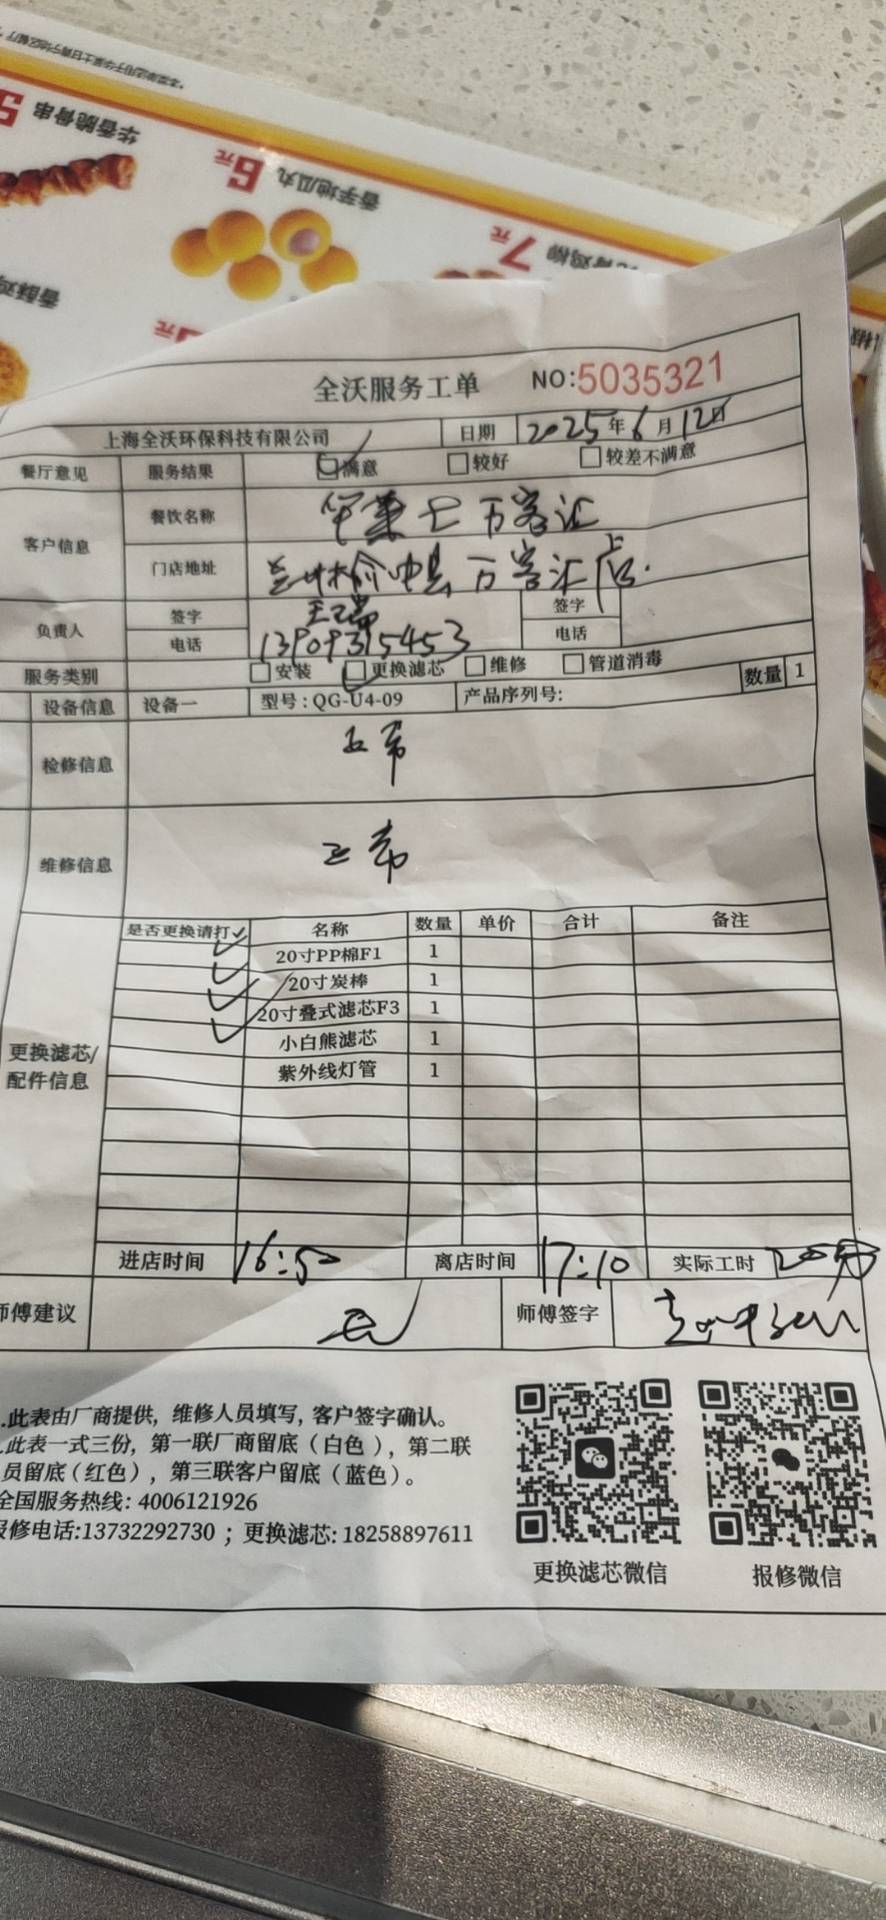 *本菜单适用于华莱士甘青宁地区餐厅
华香脆骨串 5
香芋地瓜丸 6元
鸡柳 7元
香酥鸡
元
全沃服务工单 NO:5035321
上海全沃环保科技有限公司 日期 2025年6月12日
餐厅意见 服务结果 满意 较好 较差不满意
客户信息 餐饮名称 华莱士万客汇
门店地址 兰州榆中县万客汇店.
负责人 签字 签字
电话 13909315453 电话
服务类别 安装 更换滤芯 维修 管道消毒
设备信息 设备一 型号:QG-U4-09 产品序列号: 数量 1
检修信息 正常
维修信息 正常
更换滤芯/配件信息 是否更换请打✓ 名称 数量 单价 合计 备注
✓ 20寸PP棉F1 1
✓ 20寸炭棒 1
✓ 20寸叠式滤芯F3 1
✓ 小白熊滤芯 1
紫外线灯管 1
进店时间 16:50 离店时间 17:10 实际工时 20分
师傅建议 无 师傅签字
.此表由厂商提供, 维修人员填写, 客户签字确认。
.此表一式三份, 第一联厂商留底(白色), 第二联
员留底(红色), 第三联客户留底(蓝色)。
全国服务热线: 4006121926
报修电话:13732292730 ; 更换滤芯: 18258897611
更换滤芯微信 报修微信